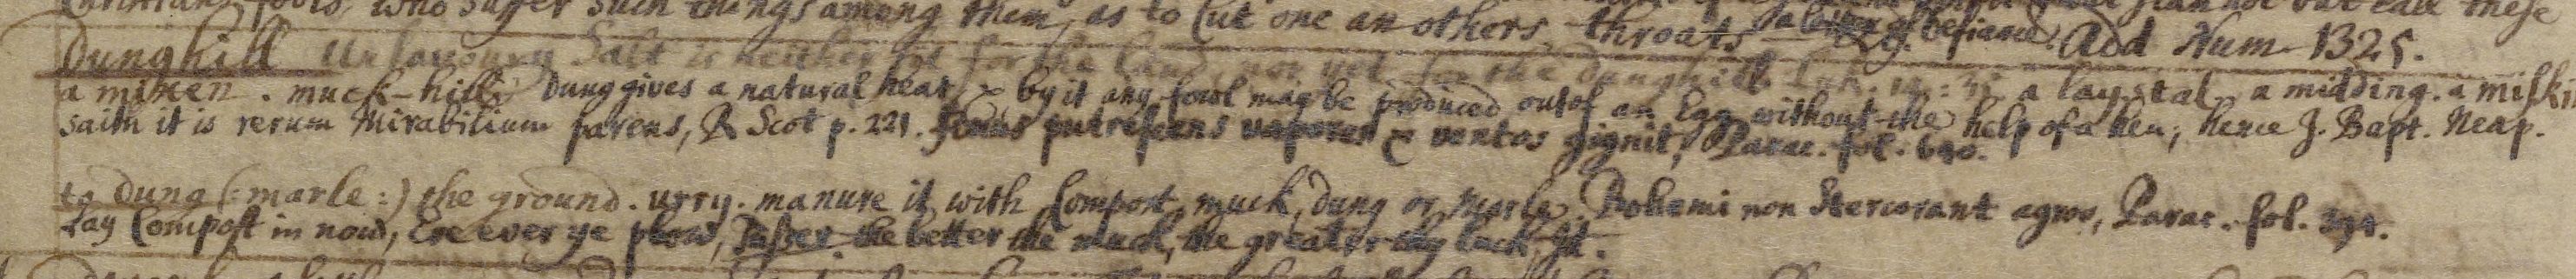 fools, who suffer such things among them, as to Cut one an others throats a letter of defiance. Add Num. 1325.
Dunghill Unsavoury Salt is neither fit for the land, nor yet for the dunghill Luk. 14: 35 a laystal. a midding. a miskin
a mixen. muck-hill. Dung gives a natural heat, & by it any fowl may be produced out of an Egg without the help of a hen; hence J. Bapt. Neap.
saith it is rerum Mirabilium parens, R Scot p. 221. fimus putrescens vapores & ventos gignit, Parac. fol. 640.
to Dung (: marle :) the ground. urry. manure it with Compost, muck, dung or Marle. Bohemi non stercorant agros, Parac. fol. 391.
Lay Compost in now, Ere ever ye plow, Tusser. the better the muck, the greater thy luck. Id.